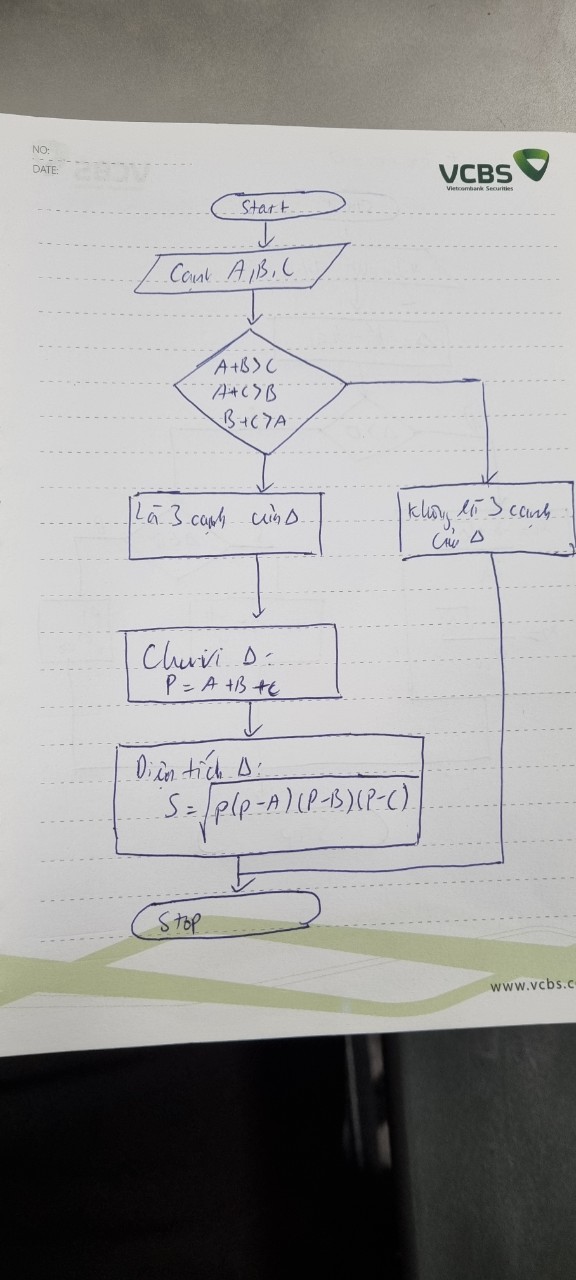 NO:
DATE:
VCBS
Vietcombank Securities
Start
Cạnh A, B, C
A+B>C
A+C>B
B+C>A
Là 3 cạnh của Δ
Không là 3 cạnh
của Δ
Chu vi Δ:
P = A + B + C
Diện tích Δ:
S = √p(p-A)(P-B)(P-C)
Stop
www.vcbs.c